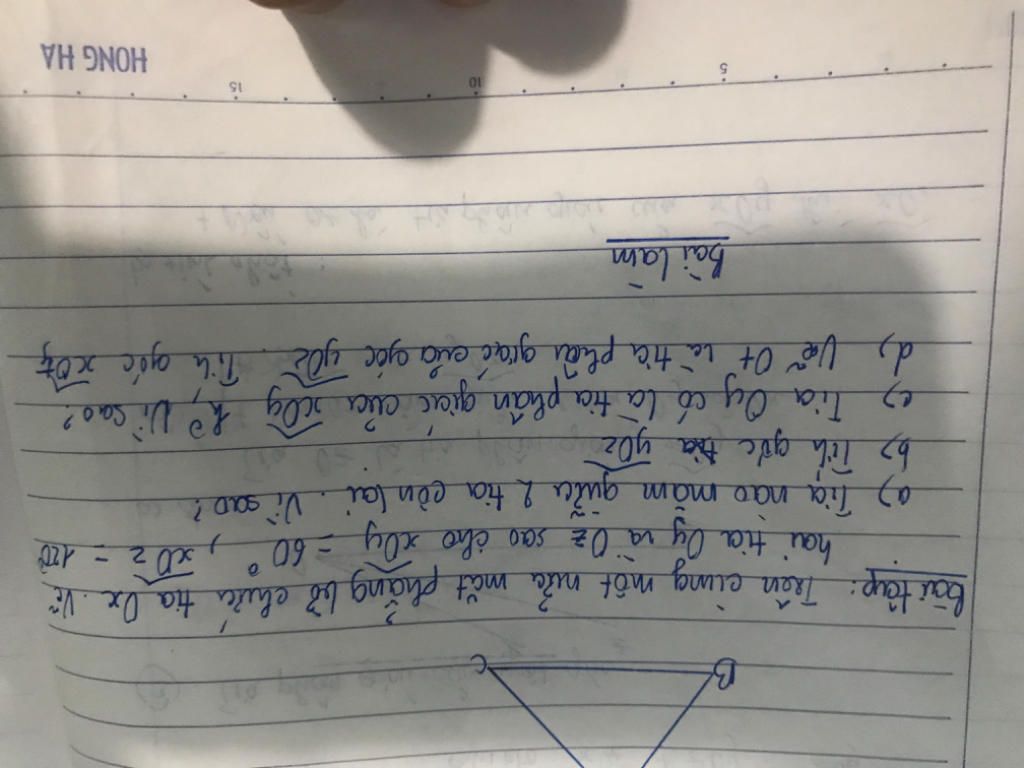 B C
Bài tập: Trên cùng một nửa mặt phẳng bờ chứa tia Ox. Vẽ
hai tia Oy và Oz sao cho xOy = 60°, xOz = 120°
a) Tia nào nằm giữa 2 tia còn lại. Vì sao?
b) Tính góc yOz
c) Tia Oy có là tia phân giác của xOy k?, Vì sao?
d) Vẽ Ot là tia phân giác của góc yOz. Tính góc xOt
Bài làm
5 10 15
HONG HA